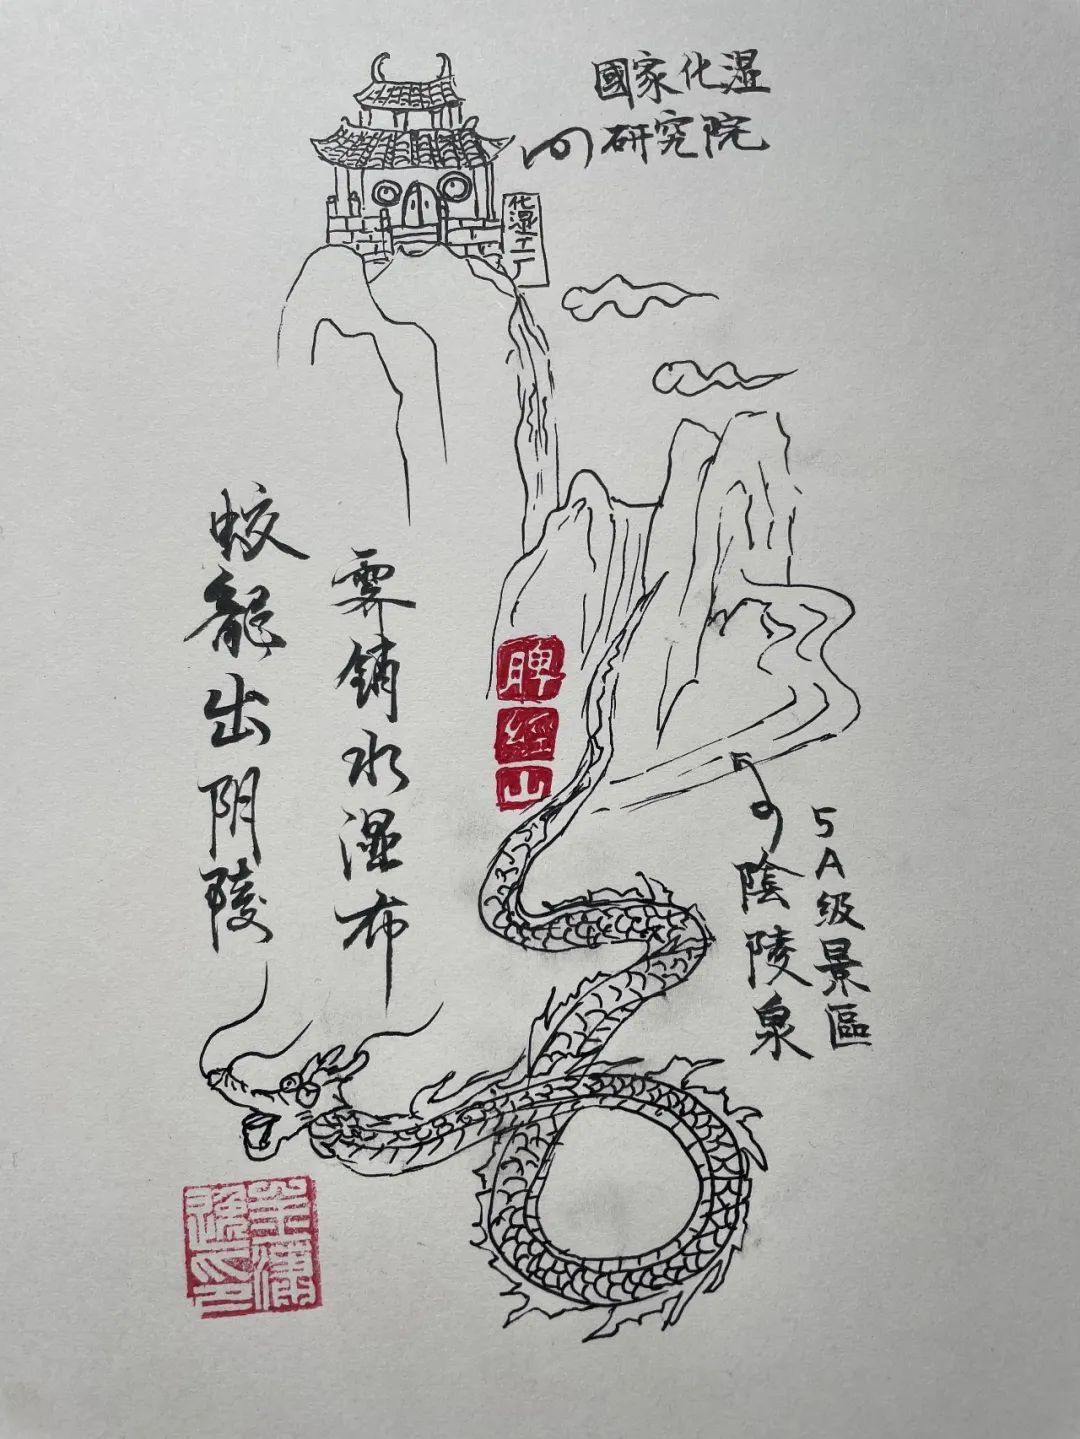 國家化湿
研究院
化湿工厂
水湿布
蛟龍出阴陵
脾經山
5A级景區
陰陵泉